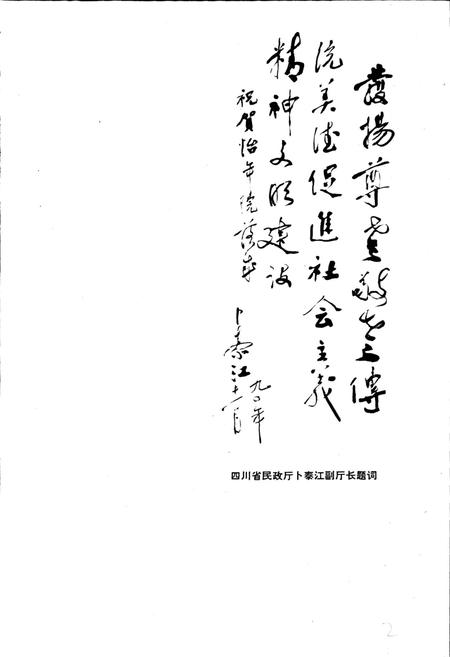 發揚尊老敬老傳
统美德促進社会主義
精神文明建设
祝賀怡年院落成
卜泰江
九〇年
十一月
四川省民政厅卜泰江副厅长题词
2